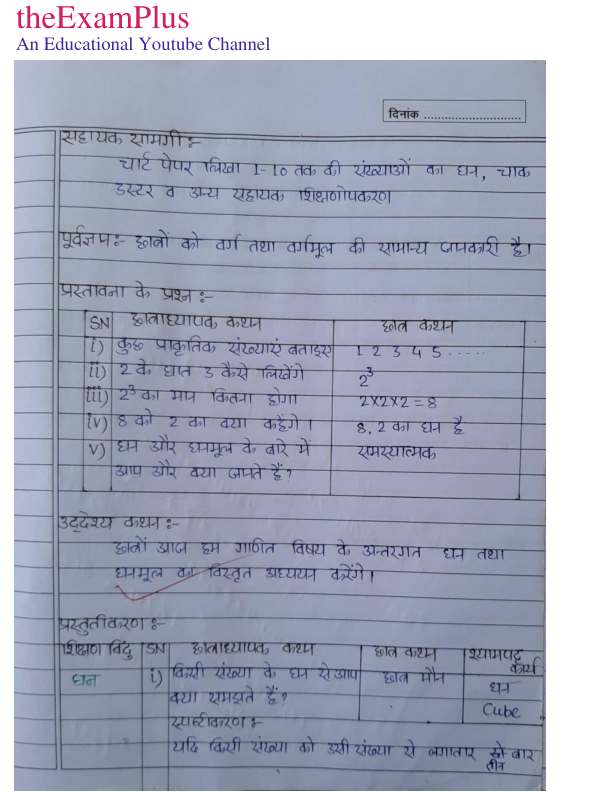 theExamPlus
An Educational Youtube Channel
दिनांक ............................
सहायक सामग्री :-
चार्ट पेपर लिखा 1-10 तक की संख्याओं का घन, चाक
डस्टर व अन्य सहायक शिक्षणोपकरण
पूर्वज्ञान:- छात्रों को वर्ग तथा वर्गमूल की सामान्य जानकारी है।
प्रस्तावना के प्रश्न :-
SN छात्राध्यापक कथन छात्र कथन
i) कुछ प्राकृतिक संख्याएं बताइए 1 2 3 4 5 .....
ii) 2 के घात 3 कैसे लिखेंगे 2³
iii) 2³ का मान कितना होगा 2×2×2 = 8
iv) 8 को 2 का क्या कहेंगे। 8, 2 का घन है
v) घन और घनमूल के बारे में समस्यात्मक
आप और क्या जानते हैं?
उद्देश्य कथन :-
छात्रों आज हम गणित विषय के अन्तरगत घन तथा
घनमूल का विस्तृत अध्ययन करेंगे।
प्रस्तुतीकरण :-
शिक्षण बिंदु SN छात्राध्यापक कथन छात्र कथन श्यामपट्ट कार्य
घन i) किसी संख्या के घन से आप छात्र मौन घन
क्या समझते हैं? Cube
स्पष्टीकरण :-
यदि किसी संख्या को उसी संख्या से लगातार तीन बार